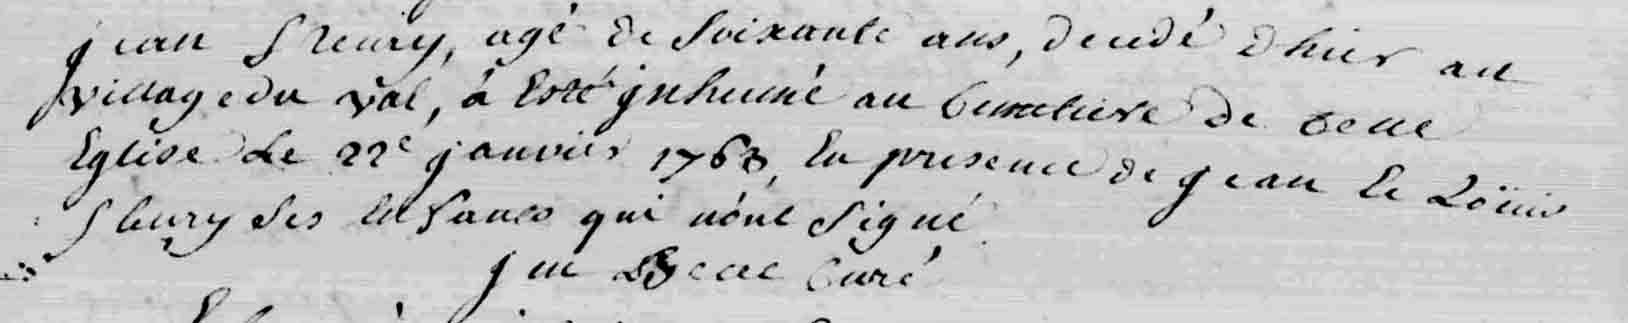 jean fleury, agé de soixante ans, decedé d'hier au
village du val, á esté jnhumé au Cimetiere de cette
Eglise le 22e janvier 1763, En presence de jean Et Loüis
fleury ses Enfants qui nónt signé
curé